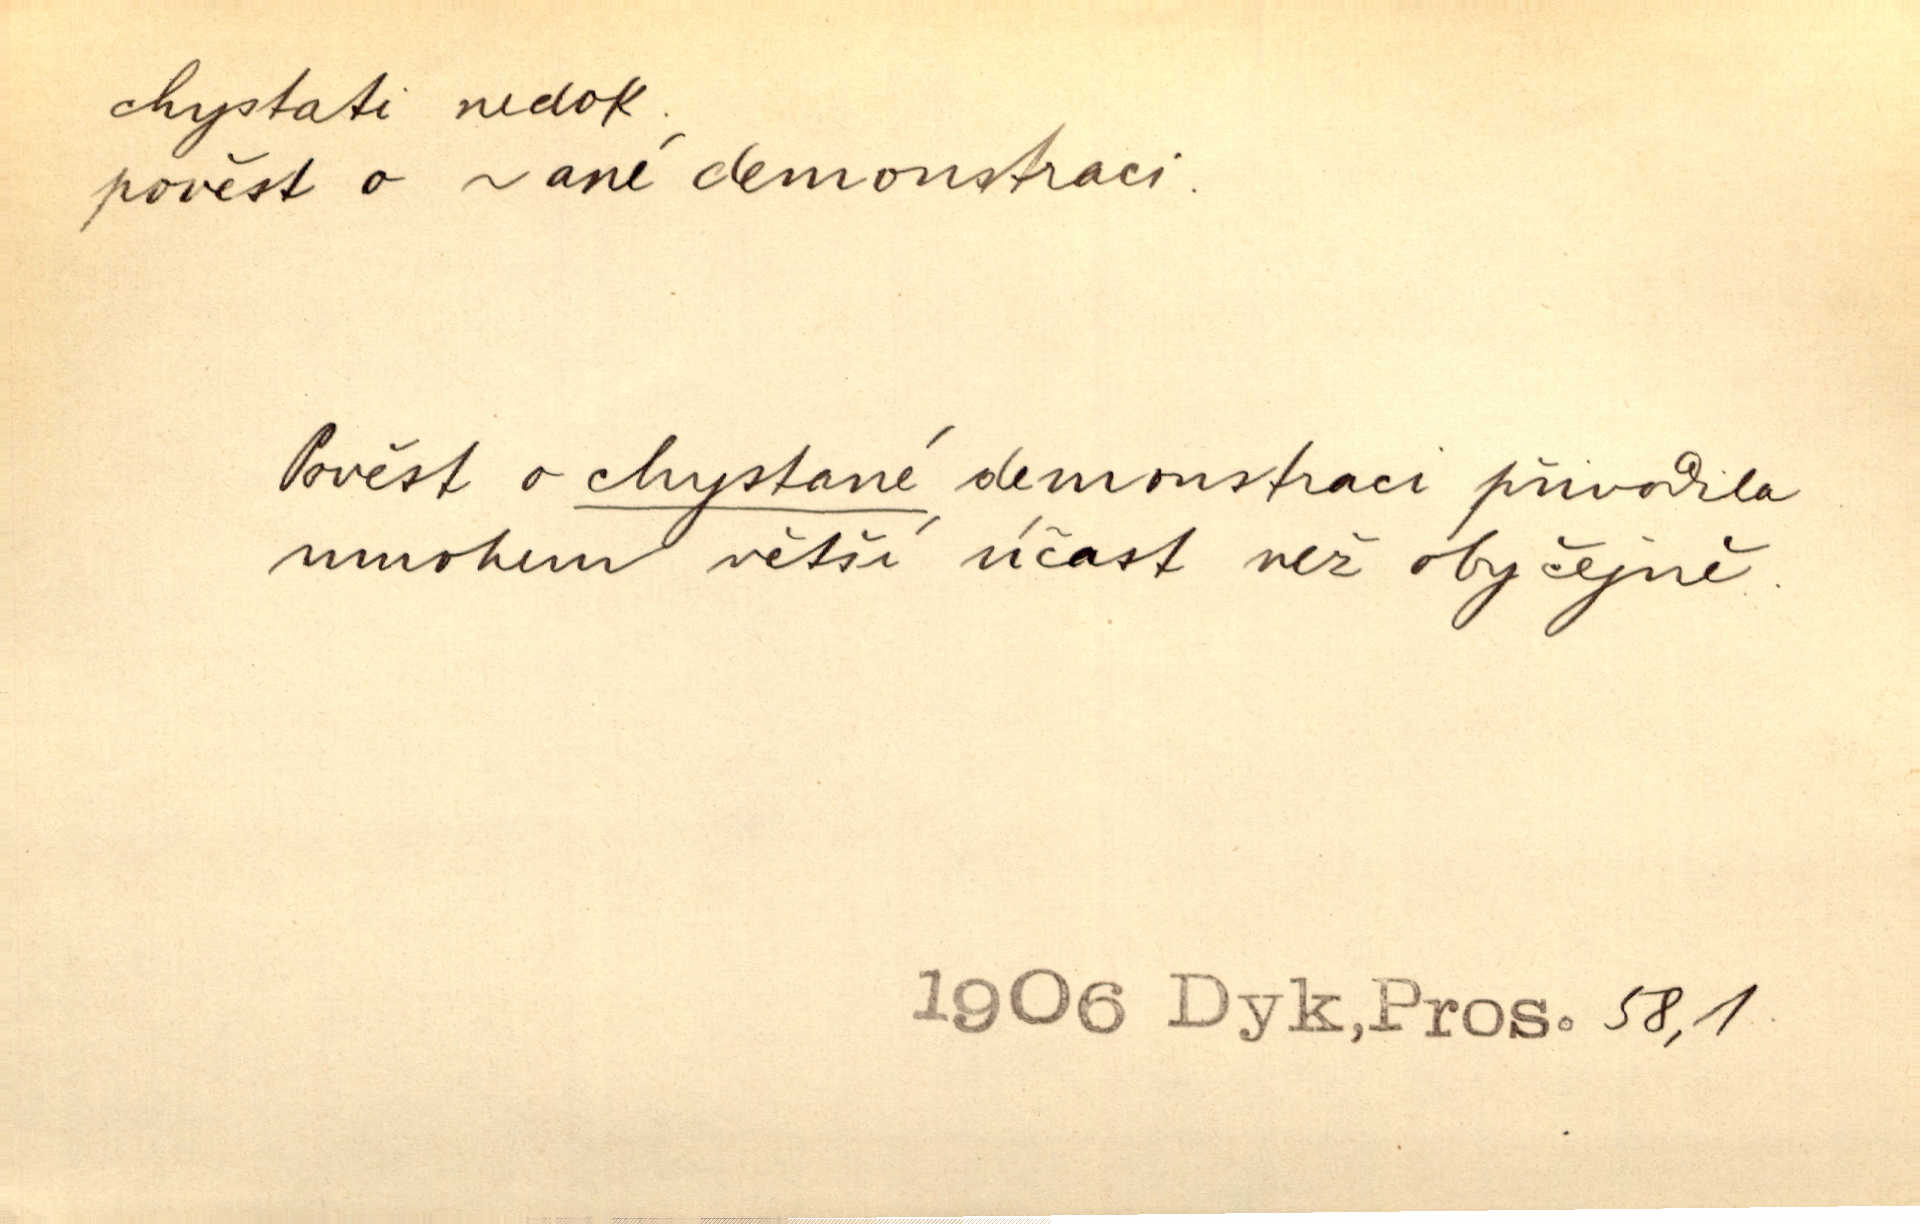 chystati nedok.
pověst o ~ané demonstraci.
Pověst o chystané demonstraci přivodila
mnohem větší účast než obyčejně.
1906 Dyk,Pros. 58,1